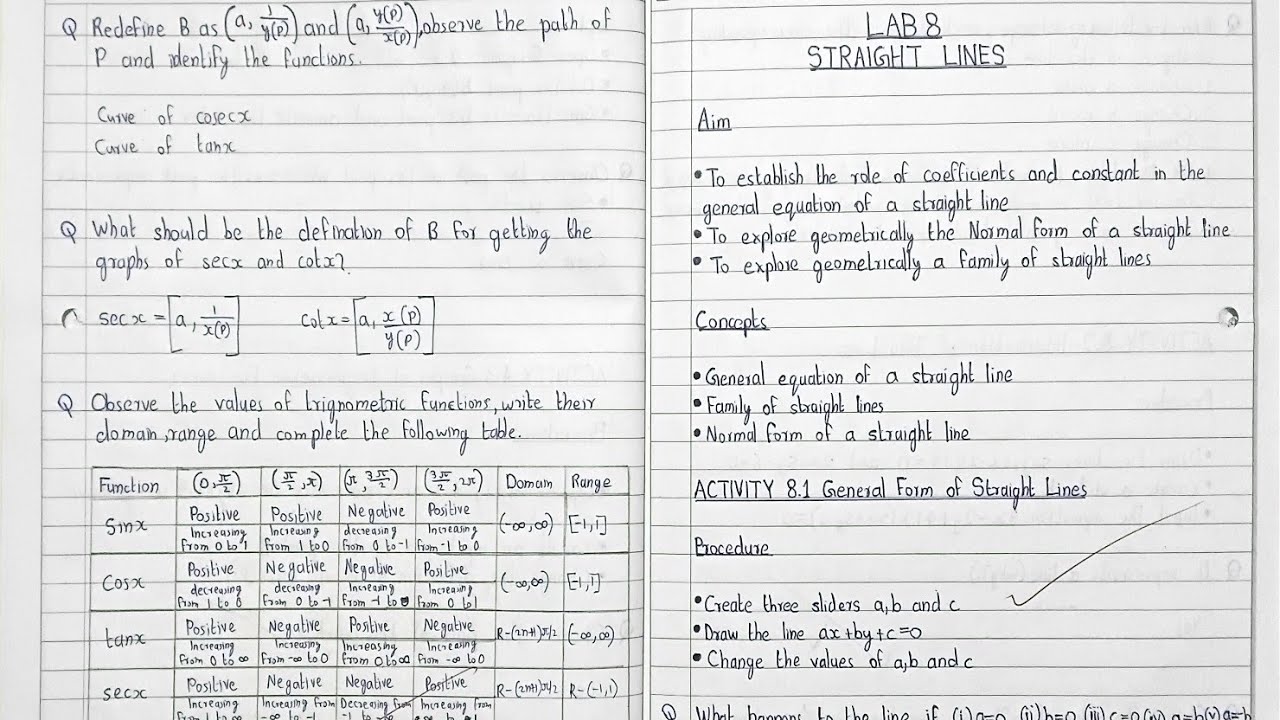 Q Redefine B as (a, 1/y(P)) and (a, y(P)/x(P)), observe the path of
P and identify the functions.
Curve of cosecx
Curve of tanx
Q What should be the defination of B for getting the
graphs of secx and cotx?
secx = [a, 1/x(P)] cotx = [a, x(P)/y(P)]
Q Observe the values of trignometric functions, write their
domain, range and complete the following table.
Function (0, π/2) (π/2, π) (π, 3π/2) (3π/2, 2π) Domain Range
Sinx Positive Positive Negative Positive (-∞,∞) [-1,1]
Increasing from 0 to 1 Increasing from 1 to 0 decreasing from 0 to -1 Increasing from -1 to 0
Cosx Positive Negative Negative Positive (-∞,∞) [-1,1]
decreasing from 1 to 0 decreasing from 0 to -1 Increasing from -1 to 0 Increasing from 0 to 1
tanx Positive Negative Positive Negative R-(2n+1)π/2 (-∞,∞)
Increasing from 0 to ∞ Increasing from -∞ to 0 Increasing from 0 to ∞ Increasing from -∞ to 0
secx Positive Negative Negative Positive R-(2n+1)π/2 R-(-1,1)
Increasing Increasing from -∞ to -1 Decreasing from -1 to Increasing from
LAB 8
STRAIGHT LINES
Aim
• To establish the role of coefficients and constant in the
general equation of a straight line
• To explore geometrically the Normal form of a straight line
• To explore geometrically a family of straight lines
Concepts
• General equation of a straight line
• Family of straight lines
• Normal form of a straight line
ACTIVITY 8.1 General Form of Straight Lines
Procedure
• Create three sliders a,b and c
• Draw the line ax+by+c=0
• Change the values of a,b and c
Q What happens to the line if (i) a=0 (ii) b=0 (iii) c=0 (iv) a=b (v) a=-b